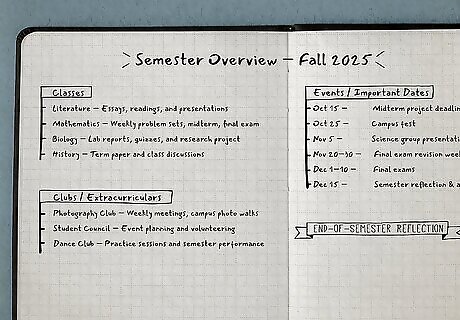 Semester Overview – Fall 2025
Classes
Literature – Essays, readings, and presentations
Mathematics – Weekly problem sets, midterm, final exam
Biology – Lab reports, quizzes, and research project
History – Term paper and class discussions
Clubs / Extracurriculars
Photography Club – Weekly meetings, campus photo walks
Student Council – Event planning and volunteering
Dance Club – Practice sessions and semester performance
Events / Important Dates
Oct 15 – Midterm project
Oct 25 – Campus fest
Nov 5 – Science group
Nov 20-30 – Final exam revision
Dec 1-10 – Final exams
Dec 15 – Semester reflection &
END-OF-SEMESTER REFLECTION